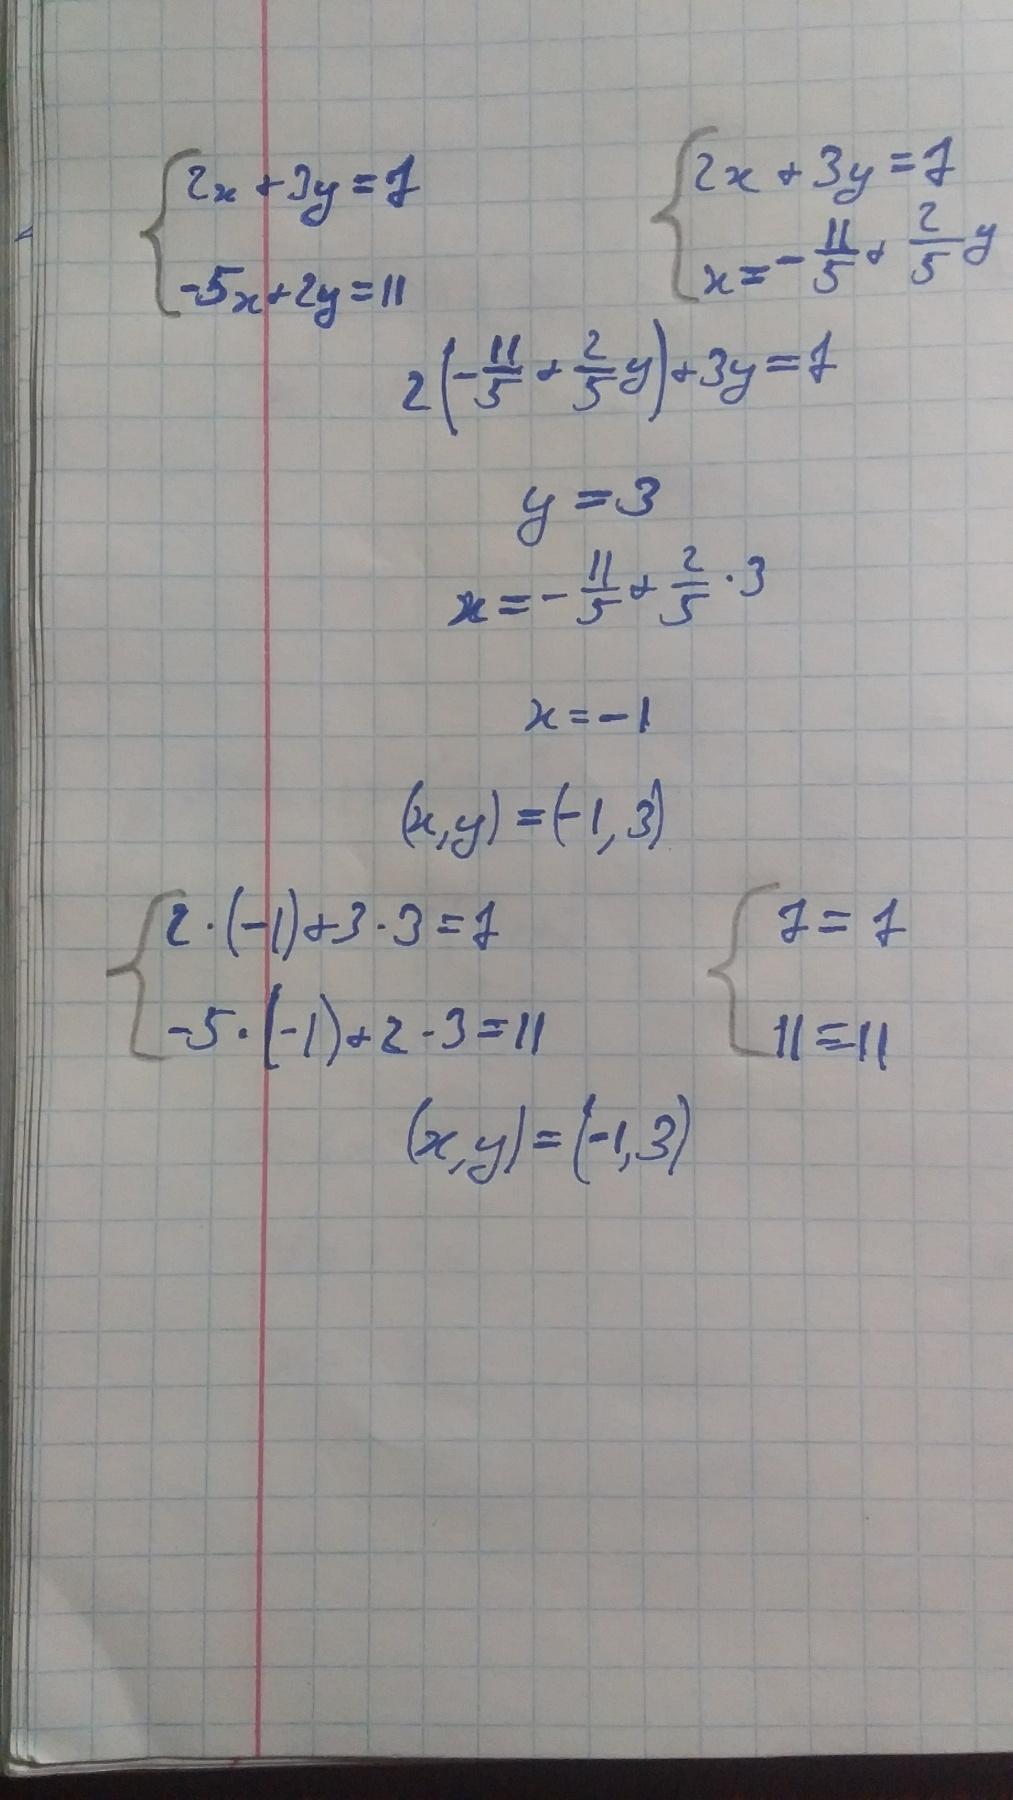 2x+3y=7
-5x+2y=11
2x+3y=7
x=-11/5+2/5y
2(-11/5+2/5y)+3y=7
y=3
x=-11/5+2/5·3
x=-1
(x,y)=(-1,3)
2·(-1)+3·3=7
-5·(-1)+2·3=11
7=7
11=11
(x,y)=(-1,3)